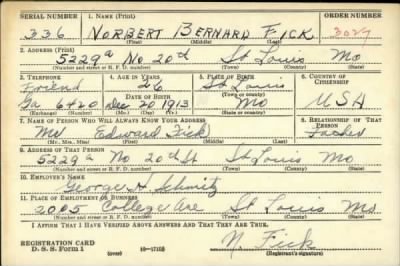 SERIAL NUMBER 1. NAME (Print) ORDER NUMBER
336 NORBERT BERNARD FICK 3027
(First) (Middle) (Last)
2. ADDRESS (Print)
5229a No 20th St Louis Mo
(Number and street or R. F. D. number) (Town) (County) (State)
3. TELEPHONE 4. AGE IN YEARS 5. PLACE OF BIRTH 6. COUNTRY OF CITIZENSHIP
Friend 26 St Louis
DATE OF BIRTH (Town or county)
Ga 6420 Dec 20 1913 Mo USA
(Exchange) (Number) (Mo.) (Day) (Yr.) (State or country)
7. NAME OF PERSON WHO WILL ALWAYS KNOW YOUR ADDRESS 8. RELATIONSHIP OF THAT PERSON
Mr Edward Fick Father
(Mr., Mrs., Miss) (First) (Middle) (Last)
9. ADDRESS OF THAT PERSON
5229a No 20th St St Louis Mo
(Number and street or R. F. D. number) (Town) (County) (State)
10. EMPLOYER'S NAME
George H Schmitz
11. PLACE OF EMPLOYMENT OR BUSINESS
2005 College Ave St Louis Mo
(Number and street or R. F. D. number) (Town) (County) (State)
I AFFIRM THAT I HAVE VERIFIED ABOVE ANSWERS AND THAT THEY ARE TRUE.
REGISTRATION CARD
D. S. S. Form 1 16-17105 N. Fick
(Registrant's signature)